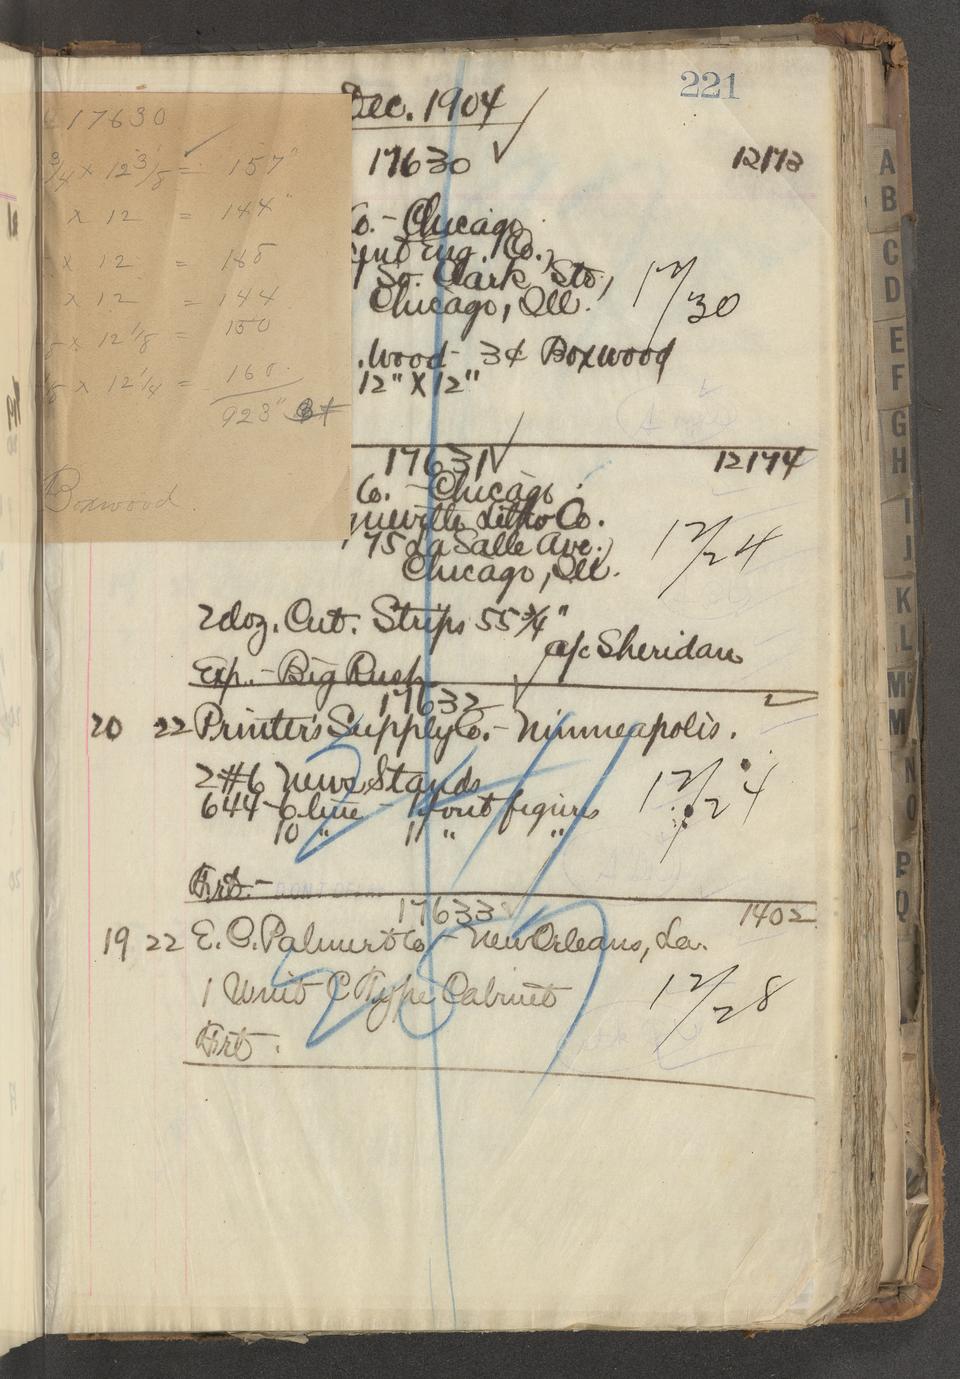 221
Dec. 1904
17630 12173
Co. - Chicago
Eng. Co.,
So. Clark Sts,
Chicago, Ill. 12/30
Wood - 3¢ Boxwood
12" X 12"
17630
3/4 x 12 3/8 = 157"
x 12 = 144"
x 12 = 165
x 12 = 144
x 12 1/8 = 150
x 12 1/4 = 160
923"
Boxwood
17631 12174
Co. - Chicago
Litho Co.
75 La Salle Ave.,
Chicago, Ill. 12/24
2 doz. Cut. Strips 55 3/4"
a/c Sheridan
Exp. - Big Rush
17632
20 22 Printer's Supply Co. - Minneapolis.
2 #6 News Stands 12/24
644 - 6 line - 1 font figures
10 " 11 " "
Frt. -
17633 1402
19 22 E. C. Palmer & Co - New Orleans, La.
1 Unit C Type Cabinet 12/28
Frt.
A
B
C
D
E
F
G
H
I
J
K
L
Mc
M
N
O
P
Q